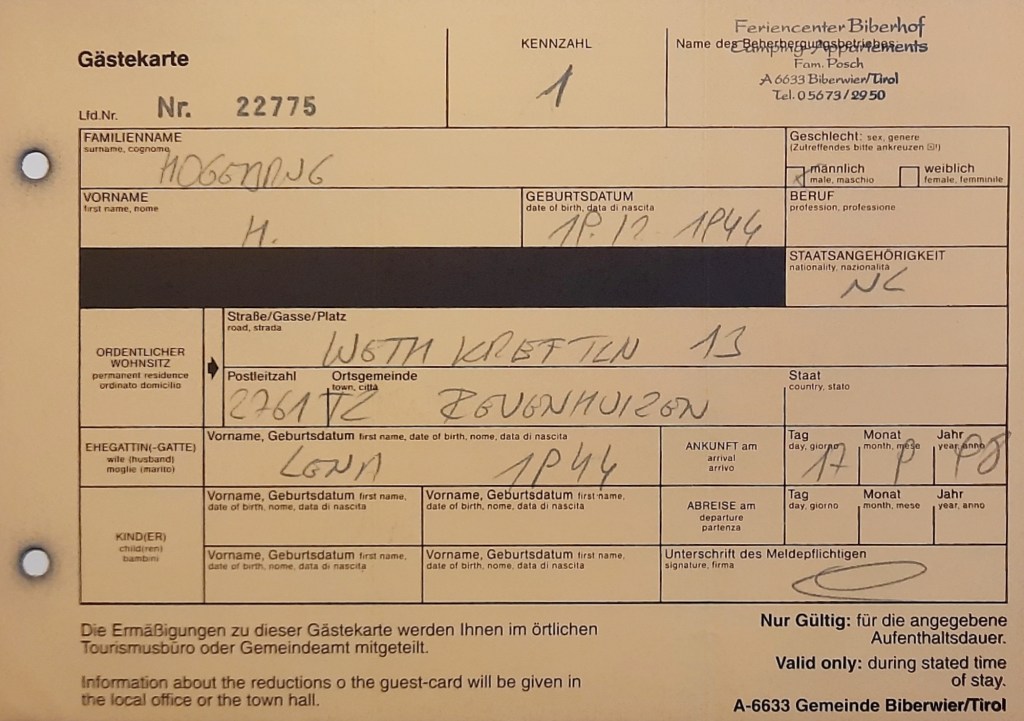 Gästekarte
Lfd.Nr. Nr. 22775
KENNZAHL
1
Name des Beherbergungsbetriebes
Feriencenter Biberhof
Camping-Appartements
Fam. Posch
A 6633 Biberwier/Tirol
Tel. 05673/2950
FAMILIENNAME
surname, cognome
Geschlecht: sex, genere
(Zutreffendes bitte ankreuzen ☒!)
männlich
male, maschio
weiblich
female, femminile
VORNAME
first name, nome
H.
GEBURTSDATUM
date of birth, data di nascita
1944
BERUF
profession, professione
STAATSANGEHÖRIGKEIT
nationality, nazionalità
NL
ORDENTLICHER
WOHNSITZ
permanent residence
ordinato domicilio
Straße/Gasse/Platz
road, strada
13
Postleitzahl
2761 TZ
Ortsgemeinde
town, città
ZEVENHUIZEN
Staat
country, stato
EHEGATTIN(-GATTE)
wife (husband)
moglie (marito)
Vorname, Geburtsdatum first name, date of birth, nome, data di nascita
LENA 1944
ANKUNFT am
arrival
arrivo
Tag
day, giorno
17
Monat
month, mese
9
Jahr
year, anno
98
KIND(ER)
child(ren)
bambini
Vorname, Geburtsdatum first name,
date of birth, nome, data di nascita
Vorname, Geburtsdatum first name,
date of birth, nome, data di nascita
ABREISE am
departure
partenza
Tag
day, giorno
Monat
month, mese
Jahr
year, anno
Vorname, Geburtsdatum first name,
date of birth, nome, data di nascita
Vorname, Geburtsdatum first name,
date of birth, nome, data di nascita
Unterschrift des Meldepflichtigen
signature, firma
Die Ermäßigungen zu dieser Gästekarte werden Ihnen im örtlichen
Tourismusbüro oder Gemeindeamt mitgeteilt.
Information about the reductions o the guest-card will be given in
the local office or the town hall.
Nur Gültig: für die angegebene
Aufenthaltsdauer.
Valid only: during stated time
of stay.
A-6633 Gemeinde Biberwier/Tirol